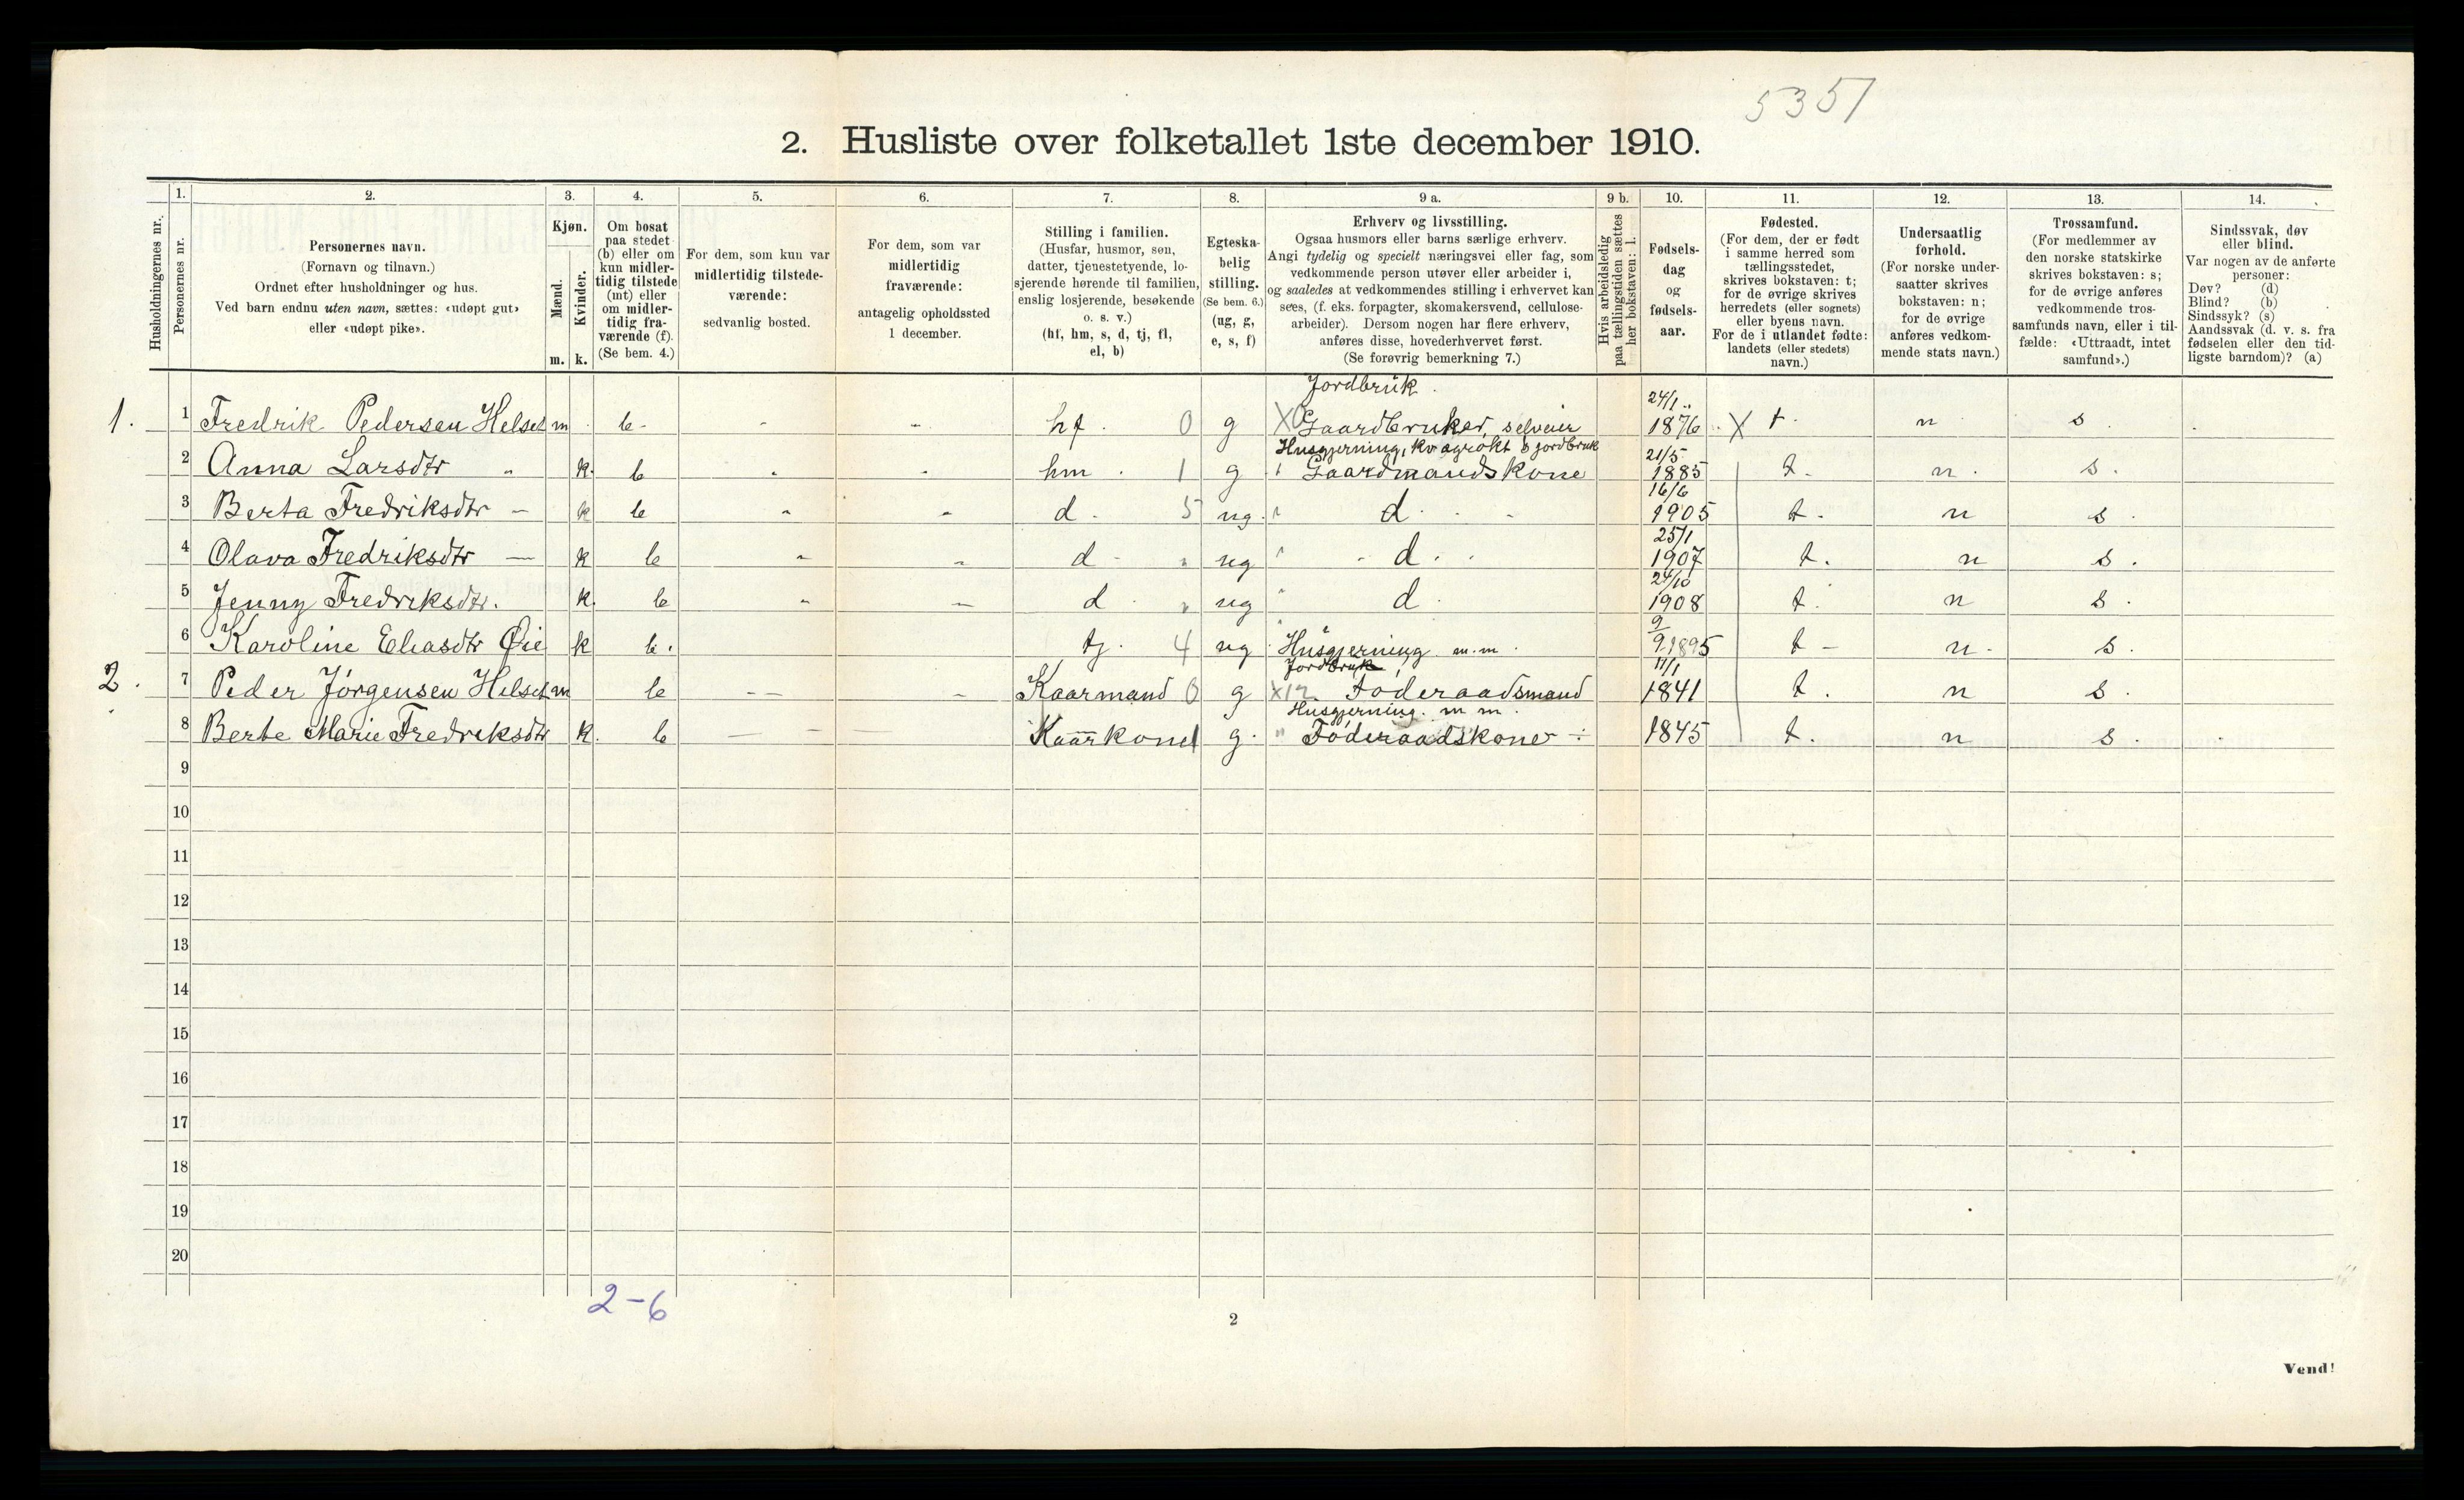 5351
2. Husliste over folketallet 1ste december 1910.
Husholdningernes nr.
1.
Personernes nr.
2.
Personernes navn.
(Fornavn og tilnavn.)
Ordnet efter husholdninger og hus.
Ved barn endnu uten navn, sættes: «udøpt gut»
eller «udøpt pike».
3.
Kjøn.
Mænd.
m.
Kvinder.
k.
4.
Om bosat
paa stedet
(b) eller om
kun midler-
tidig tilstede
(mt) eller
om midler-
tidig fra-
værende (f).
(Se bem. 4.)
5.
For dem, som kun var
midlertidig tilstede-
værende:
sedvanlig bosted.
6.
For dem, som var
midlertidig
fraværende:
antagelig opholdssted
1 december.
7.
Stilling i familien.
(Husfar, husmor, søn,
datter, tjenestetyende, lo-
sjerende hørende til familien,
enslig losjerende, besøkende
o. s. v.)
(hf, hm, s, d, tj, fl,
el, b)
8.
Egteska-
belig
stilling.
(Se bem. 6.)
(ug, g,
e, s, f)
9 a.
Erhverv og livsstilling.
Ogsaa husmors eller barns særlige erhverv.
Angi tydelig og specielt næringsvei eller fag, som
vedkommende person utøver eller arbeider i,
og saaledes at vedkommendes stilling i erhvervet kan
sees, (f. eks. forpagter, skomakersvend, cellulose-
arbeider). Dersom nogen har flere erhverv,
anføres disse, hovederhvervet først.
(Se forøvrig bemerkning 7.)
9 b.
Hvis arbeidsledig
paa tællingstiden sættes
her bokstaven: l.
10.
Fødsels-
dag
og
fødsels-
aar.
11.
Fødested.
(For dem, der er født
i samme herred som
tællingsstedet,
skrives bokstaven: t;
for de øvrige skrives
herredets (eller sognets)
eller byens navn.
For de i utlandet fødte:
landets (eller stedets)
navn.)
12.
Undersaatlig
forhold.
(For norske under-
saatter skrives
bokstaven: n;
for de øvrige
anføres vedkom-
mende stats navn.)
13.
Trossamfund.
(For medlemmer av
den norske statskirke
skrives bokstaven: s;
for de øvrige anføres
vedkommende tros-
samfunds navn, eller i til-
fælde: «Uttraadt, intet
samfund».)
14.
Sindssvak, døv
eller blind.
Var nogen av de anførte
personer:
Døv? (d)
Blind? (b)
Sindssyk? (s)
Aandssvak (d. v. s. fra
fødselen eller den tid-
ligste barndom)? (a)
Jordbruk.
1. 1 Fredrik Pedersen Helset m b - - hf. 0 g X0 Gaardbruker, selveier 24/1 1876 X t. n s
Husgjerning, kvægrøkt & jordbruk
2 Anna Larsdtr " k. b " " hm. 1 g " Gaardmandskone 21/5 1885 t. n. s.
3 Berta Fredriksdtr - k b " " d. 5 ug. " d. 16/6 1905 t. n s.
4 Olava Fredriksdtr — k b " " d - " ug " d. 25/1 1907 t. n s.
5 Jenny Fredriksdtr. k. b " - d. " ug " d. 24/10 1908 t. n s.
6 Karoline Eliasdtr Øie k b. tj. 4 ug Husgjerning m.m. 9/9 1895 t - n. s.
Jordbruk
2. 7 Peder Jørgensen Helset m b - - - Kaarmand 0 g X12 Føderaadsmand 11/1 1841 t. n s.
Husgjerning. m m.
8 Berte Marie Fredriksdtr k. b — - — Kaarkone 1 g. " Føderaadskone ÷ 1845 t. n s.
9
10
11
12
13
14
15
16
17
18
19
20
2-6
2
Vend!